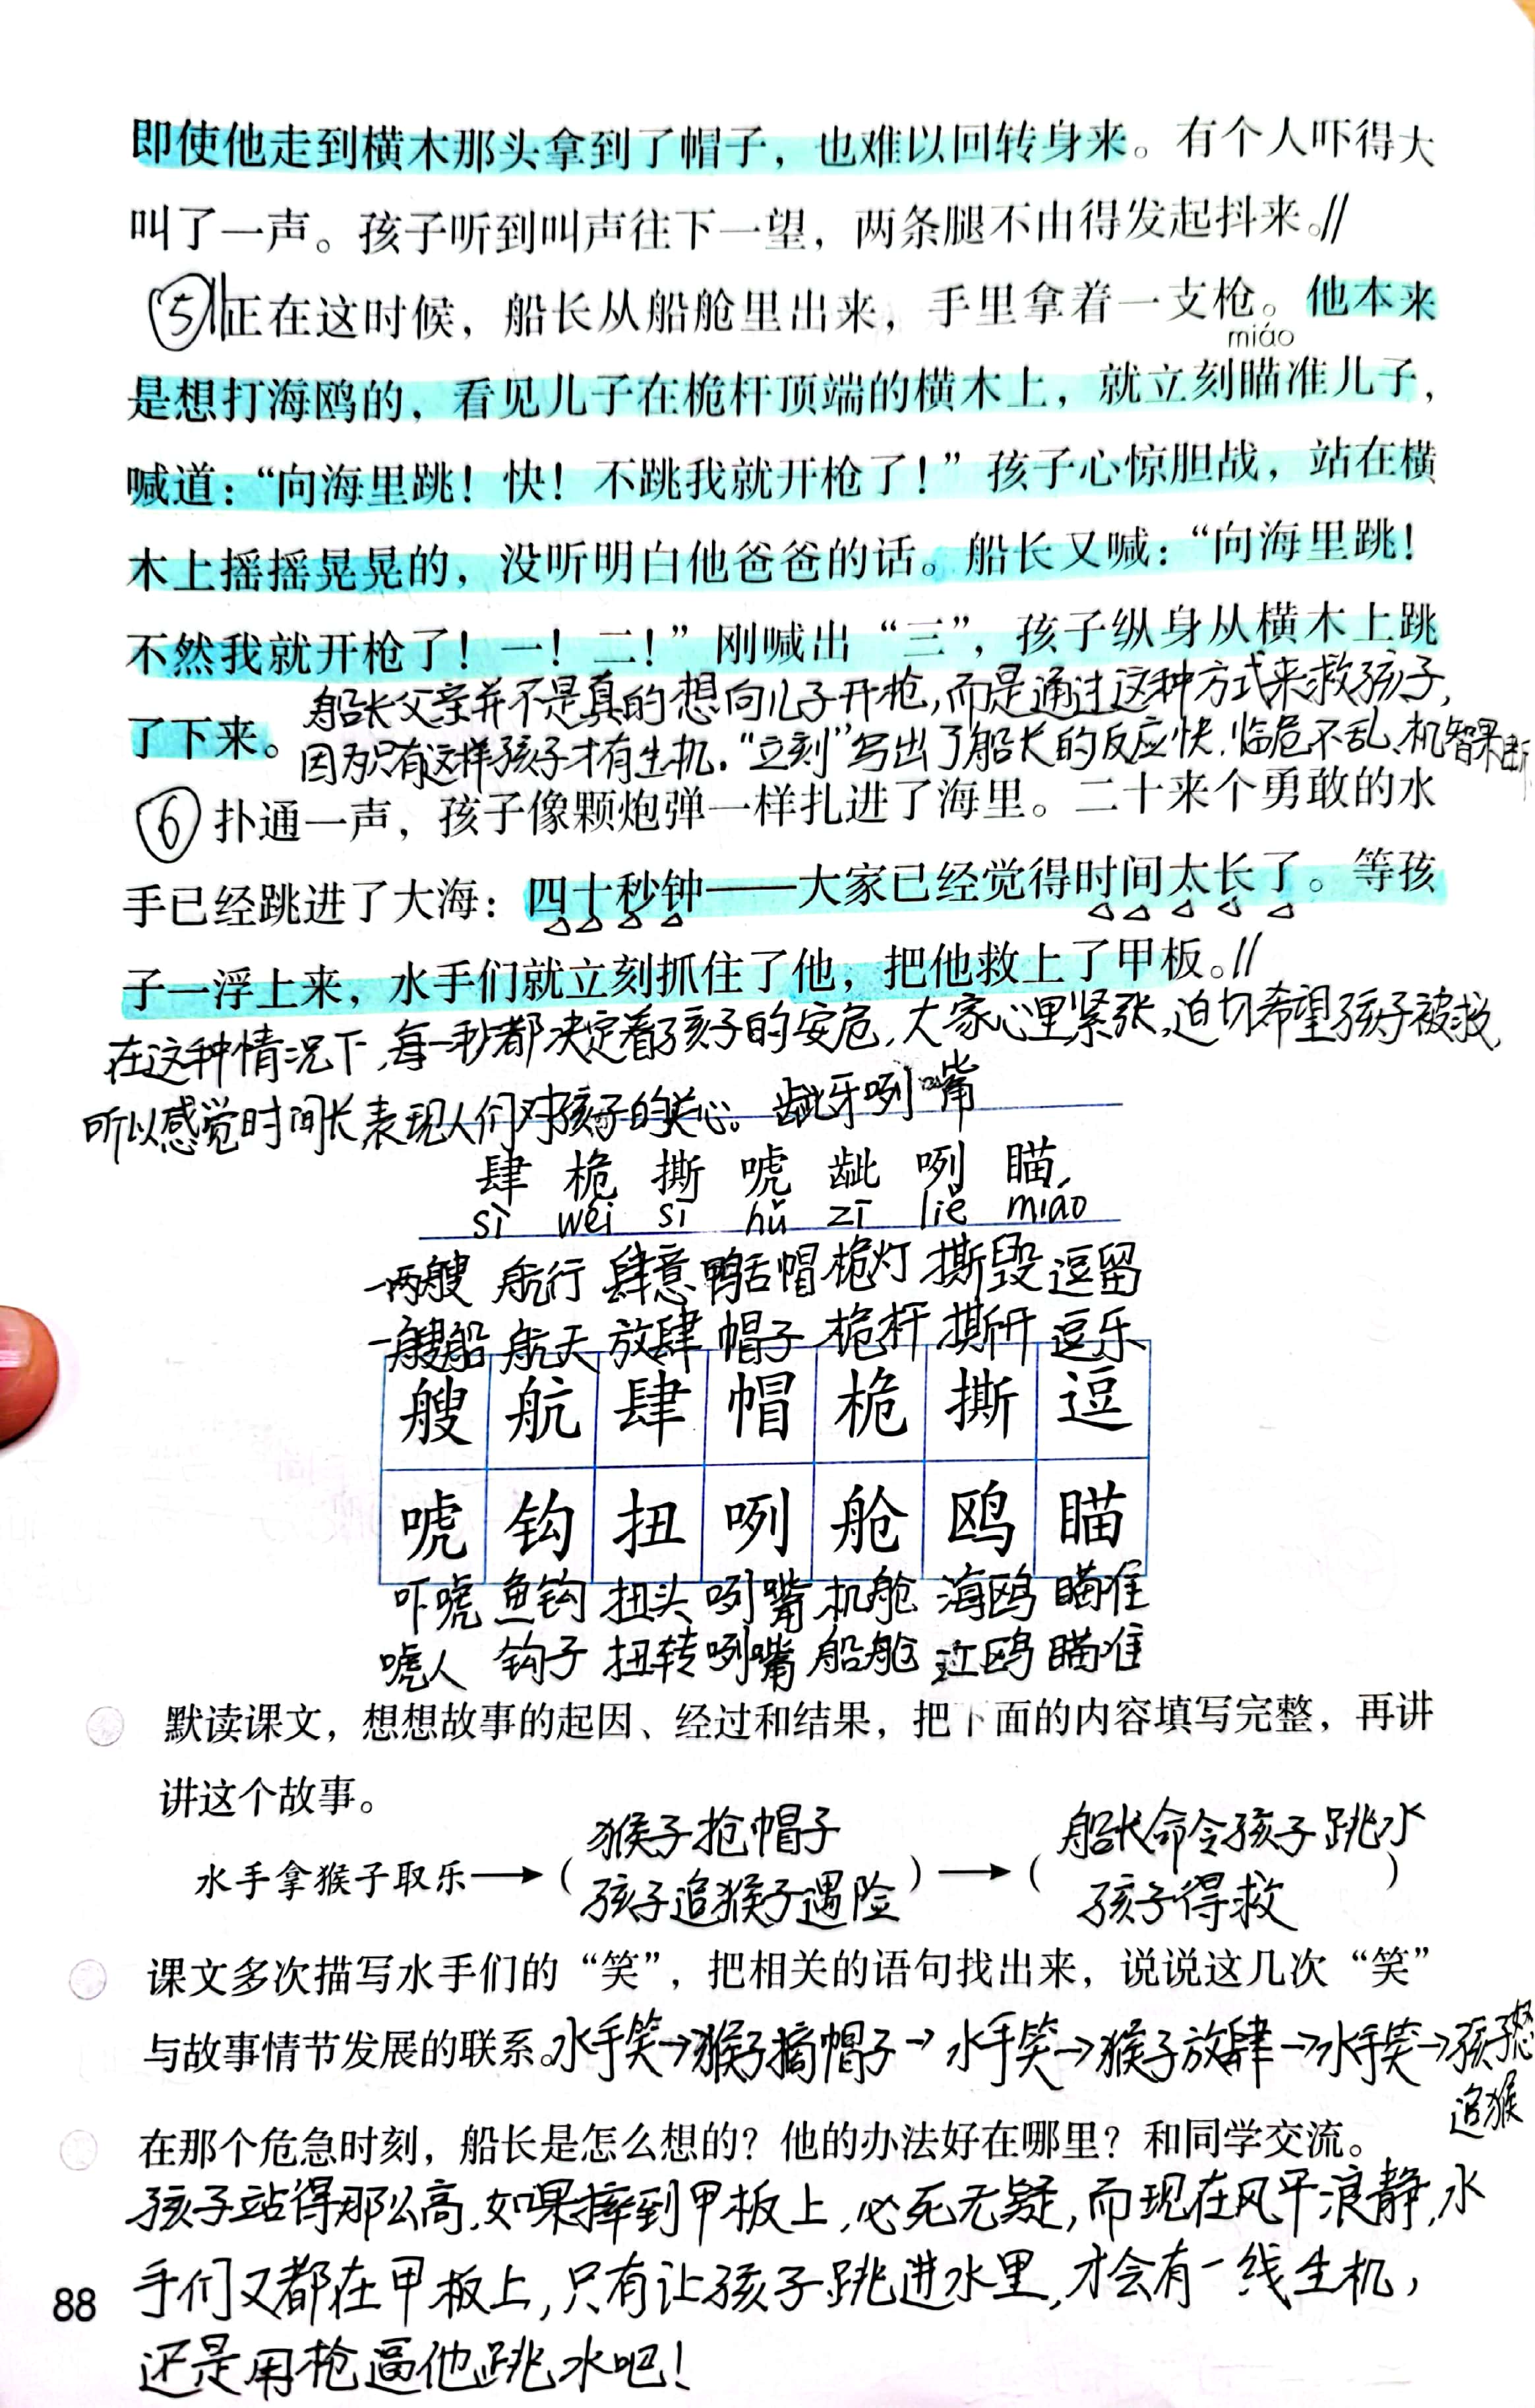 即使他走到横木那头拿到了帽子，也难以回转身来。有个人吓得大
叫了一声。孩子听到叫声往下一望，两条腿不由得发起抖来。//
⑤正在这时候，船长从船舱里出来，手里拿着一支枪。他本来
miáo
是想打海鸥的，看见儿子在桅杆顶端的横木上，就立刻瞄准儿子，
喊道：“向海里跳！快！不跳我就开枪了！”孩子心惊胆战，站在横
木上摇摇晃晃的，没听明白他爸爸的话。船长又喊：“向海里跳！
不然我就开枪了！一！二！”刚喊出“三”，孩子纵身从横木上跳
了下来。
船长父亲并不是真的想向儿子开枪，而是通过这种方式来救孩子，
因为只有这样孩子才有生机。“立刻”写出了船长的反应快、临危不乱、机智果断
⑥扑通一声，孩子像颗炮弹一样扎进了海里。二十来个勇敢的水
手已经跳进了大海：四十秒钟——大家已经觉得时间太长了。等孩
子一浮上来，水手们就立刻抓住了他，把他救上了甲板。//
在这种情况下，每一秒都决定着孩子的安危，大家心里紧张，迫切希望孩子被救，
所以感觉时间长表现人们对孩子的关心。 龇牙咧嘴
肆 桅 撕 唬 龇 咧 瞄
sì wéi sī hǔ zī liě miáo
一两艘 航行 肆意 鸭舌帽 桅灯 撕毁 逗留
一艘船 航天 放肆 帽子 桅杆 撕开 逗乐
艘 航 肆 帽 桅 撕 逗
唬 钩 扭 咧 舱 鸥 瞄
吓唬 鱼钩 扭头 咧嘴 机舱 海鸥 瞄准
唬人 钩子 扭转 咧嘴 船舱 江鸥 瞄准
默读课文，想想故事的起因、经过和结果，把下面的内容填写完整，再讲
讲这个故事。
猴子抢帽子 船长命令孩子跳水
水手拿猴子取乐→（ ）→（ ）
孩子追猴子遇险 孩子得救
课文多次描写水手们的“笑”，把相关的语句找出来，说说这几次“笑”
与故事情节发展的联系。水手笑→猴子摘帽子→水手笑→猴子放肆→水手笑→孩子怒
追猴
在那个危急时刻，船长是怎么想的？他的办法好在哪里？和同学交流。
孩子站得那么高，如果摔到甲板上，必死无疑，而现在风平浪静，水
手们又都在甲板上，只有让孩子跳进水里，才会有一线生机，
还是用枪逼他跳水吧！
88